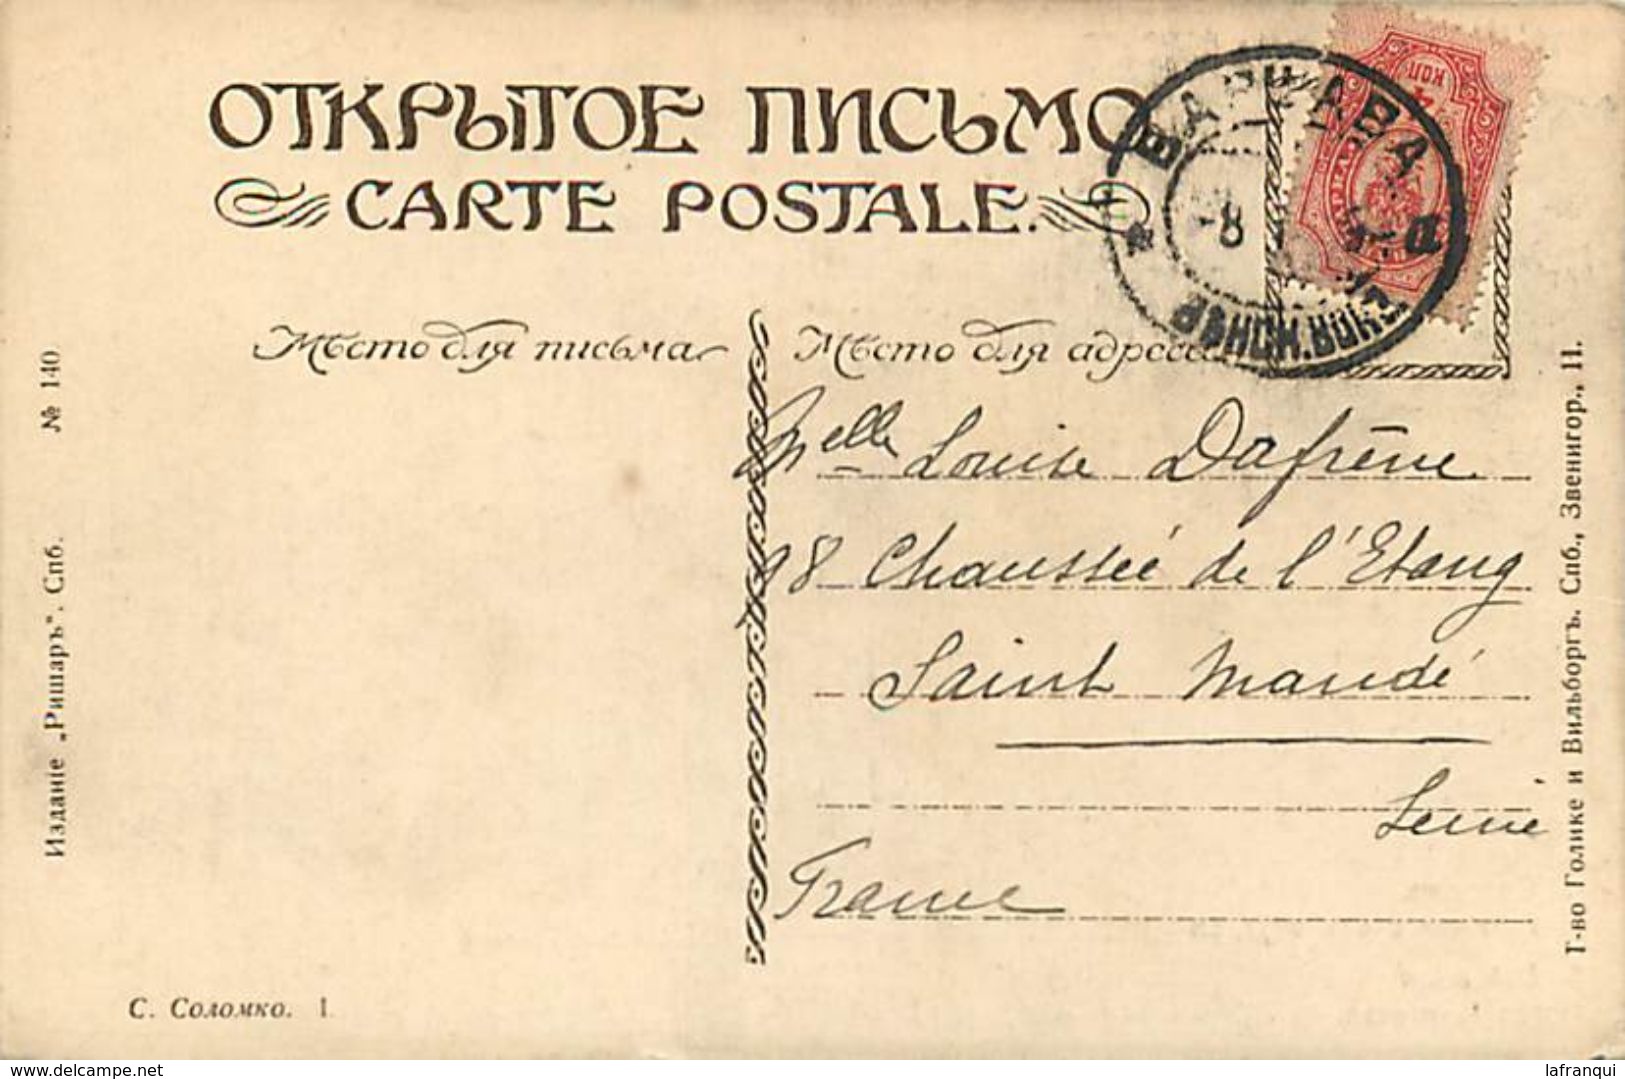 ОТКРЫТОЕ ПИСЬМО
CARTE POSTALE.
4 КОП
ВАРШАВА
-8
ВѢНСК. ВОКЗ.
Мѣсто для письма
Мѣсто для адреса
Melle Louise Dafrène
98 Chaussée de l'Etang
Saint Mandé
Seine
France
№ 140
Изданіе „Ришаръ“. Спб.
С. Соломко. 1
Т-во Голике и Вильборгъ. Спб., Звенигор., 11.
delcampe.net
lafranqui